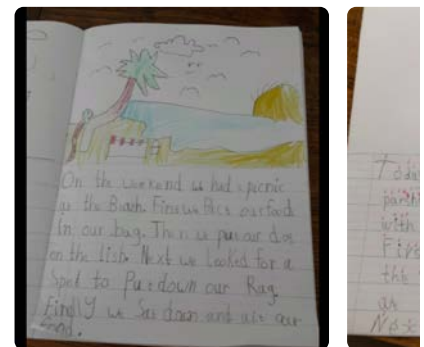 On the weekend we had a picnic
at the Beach. First we our food
in our bag. Then we put our dog
on the Next we Looked for a
Spot to Put down our Rag.
Findly we Sat down and ate our
food.
Toda
with
Firs
the
at